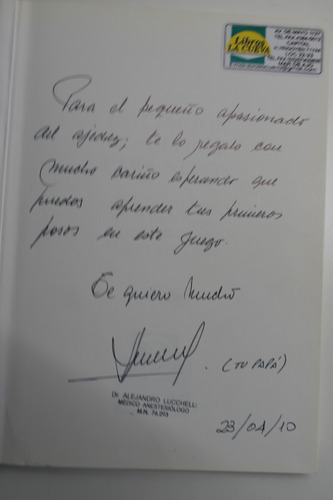 Libros
LA CUEVA
AV. DE MAYO
CAPITAL
Para el pequeño apasionado
del ajedrez; te lo regalo con
mucho cariño esperando que
puedas aprender tus primeros
pasos en este juego.
Te quiero mucho
(TU PAPÁ)
Dr. ALEJANDRO LUCCHELLI
MEDICO ANESTESIÓLOGO
M.N. 76.203
23/04/10